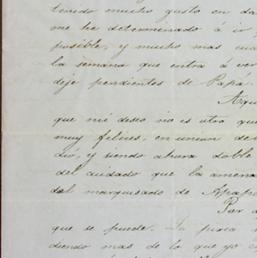 tenido mucho gusto en da
me he determinado á ir
posible, y mucho mas cua
la semana que entra á ver
deje pendientes de Papá
Aqu
que mi deseo no es otro que
muy felices, en union de
dió, y siendo ahora doble
del cuidado que la amena
del marquisado de Apapr
Por a
que se puede. La pieza
diendo mas de lo que yo c